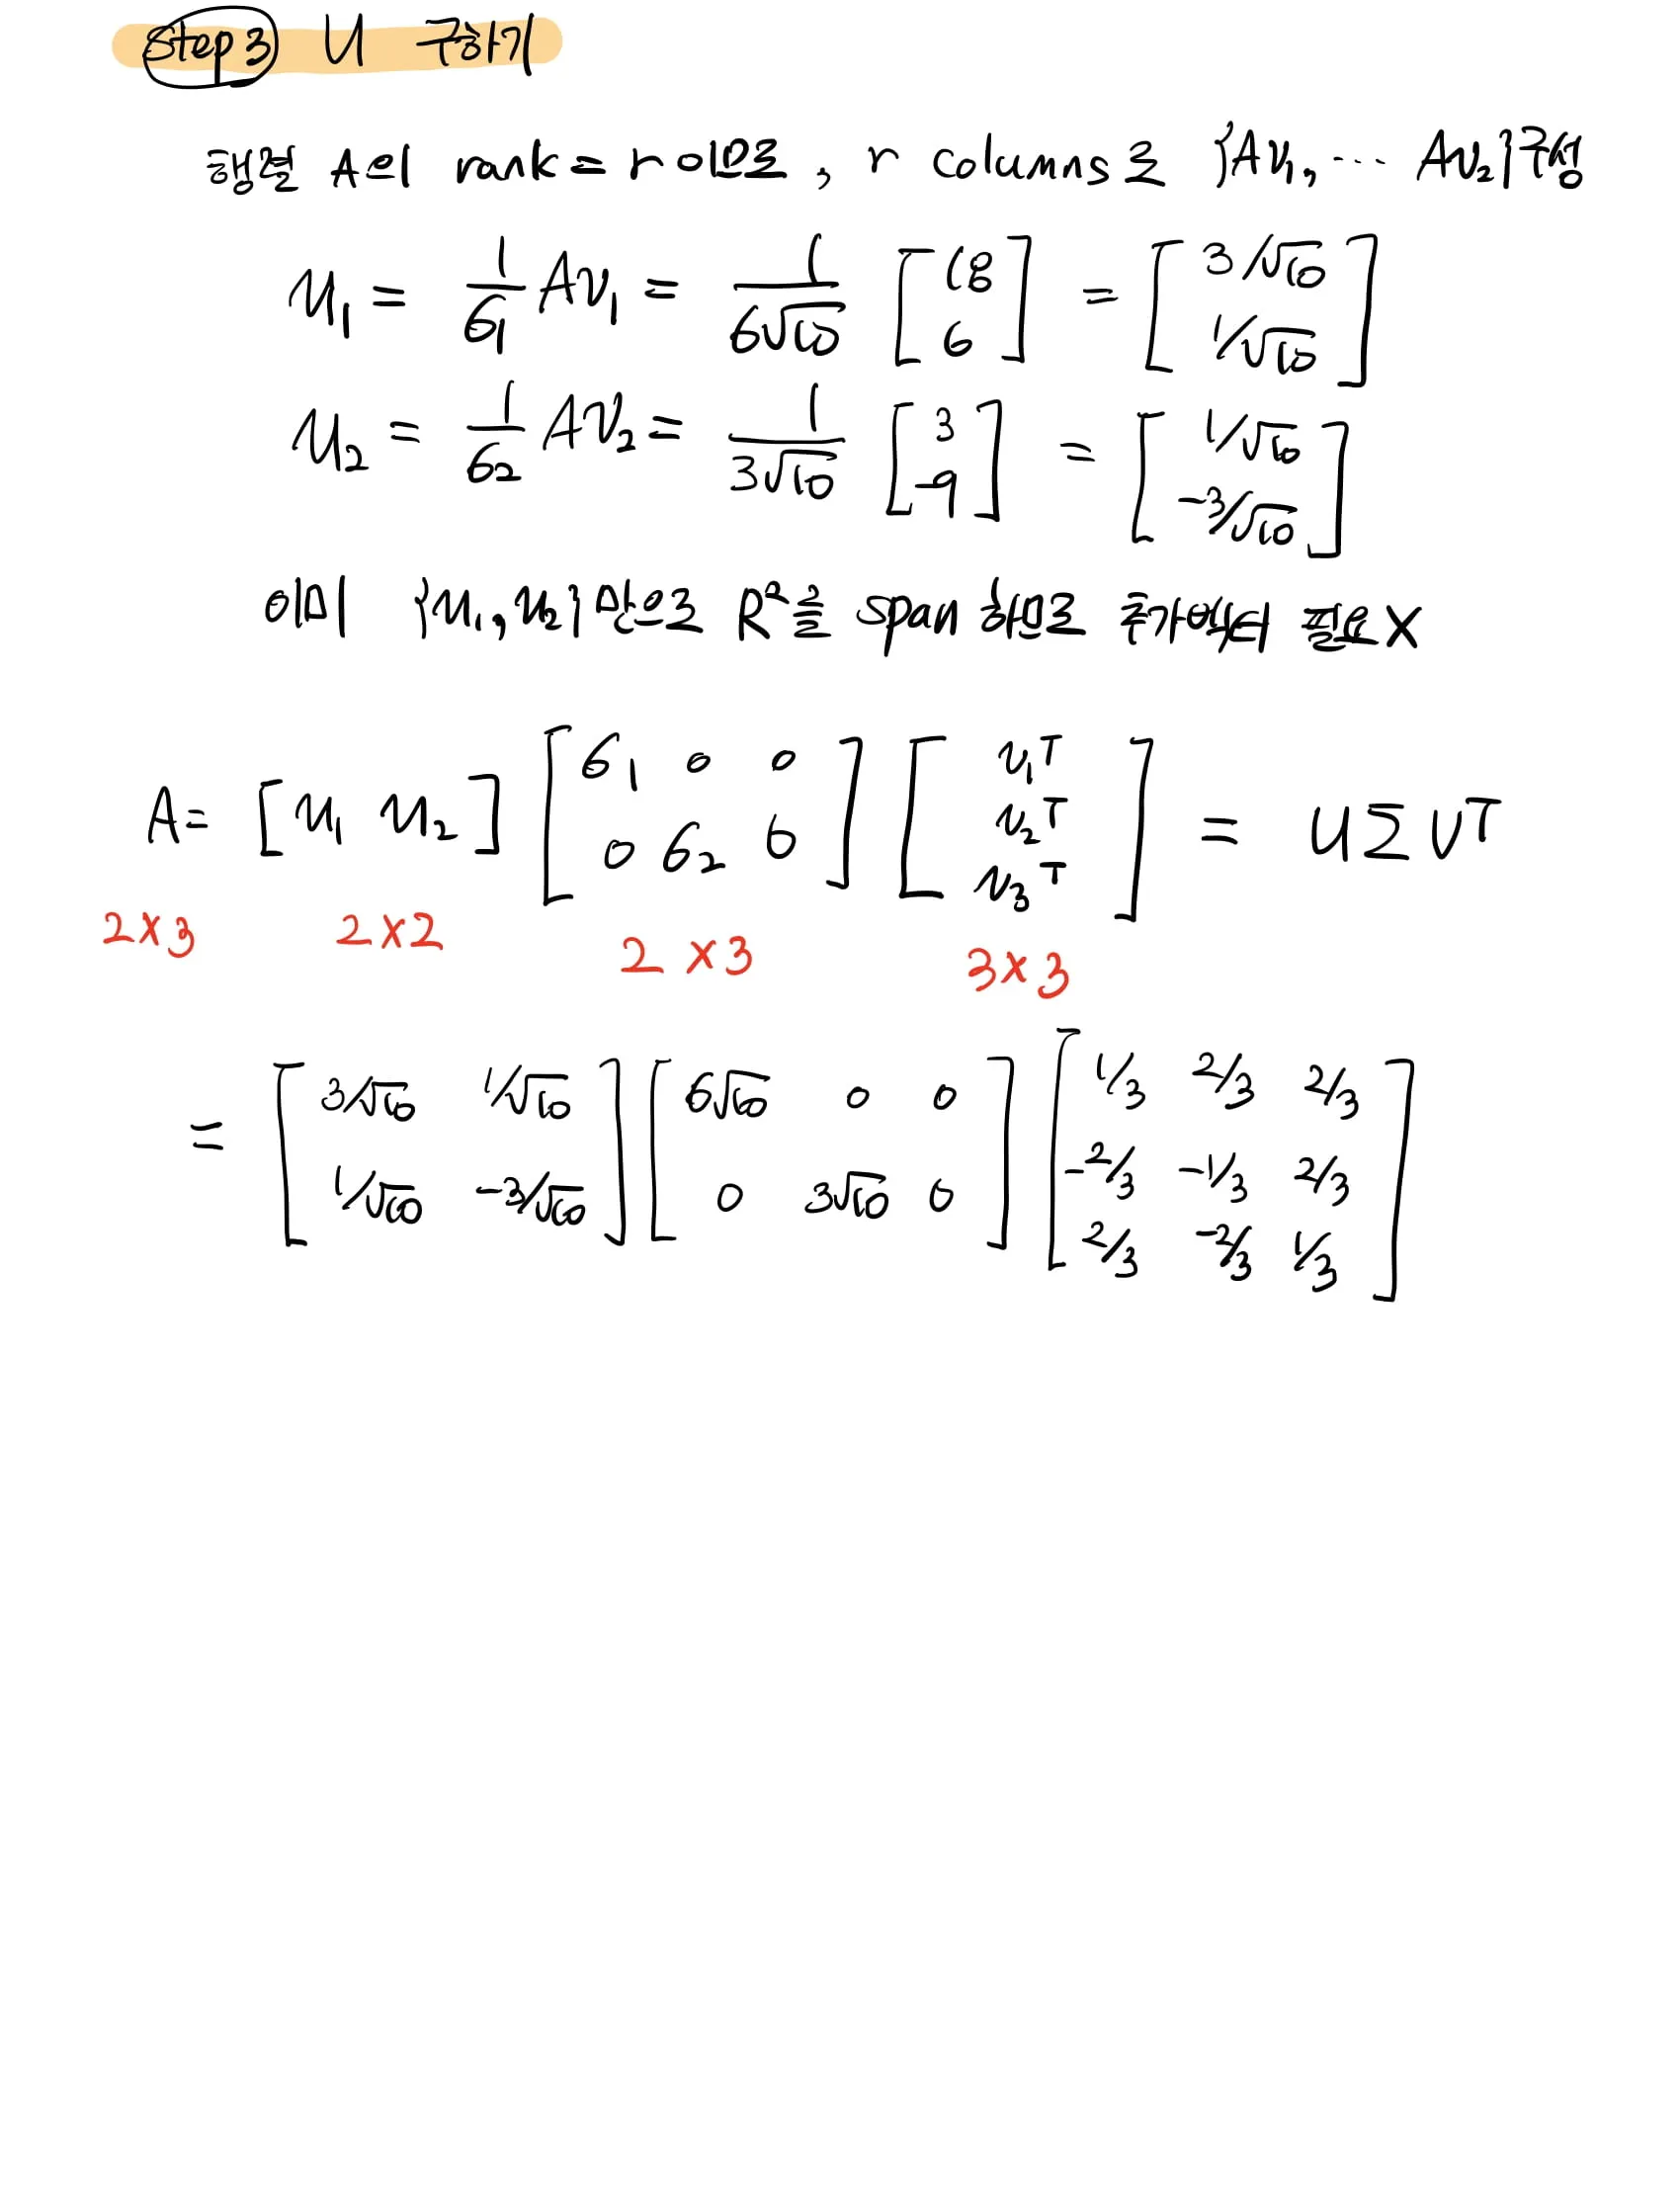 Step 3 U 구하기
행렬 A의 rank = r 이므로, r columns로 {Av₁, ... Av₂} 구성
u₁ = 1/σ₁ Av₁ = 1/(6√10) [18 6] = [3/√10 1/√10]
u₂ = 1/σ₂ Av₂ = 1/(3√10) [3 -9] = [1/√10 -3/√10]
이미 {u₁, u₂}만으로 R²를 span 하므로 추가벡터 필요 X
A = [u₁ u₂] [σ₁ 0 0 ; 0 σ₂ 0] [v₁ᵀ ; v₂ᵀ ; v₃ᵀ] = UΣVᵀ
2×3 2×2 2×3 3×3
= [3/√10 1/√10 ; 1/√10 -3/√10] [6√10 0 0 ; 0 3√10 0] [1/3 2/3 2/3 ; -2/3 -1/3 2/3 ; 2/3 -2/3 1/3]